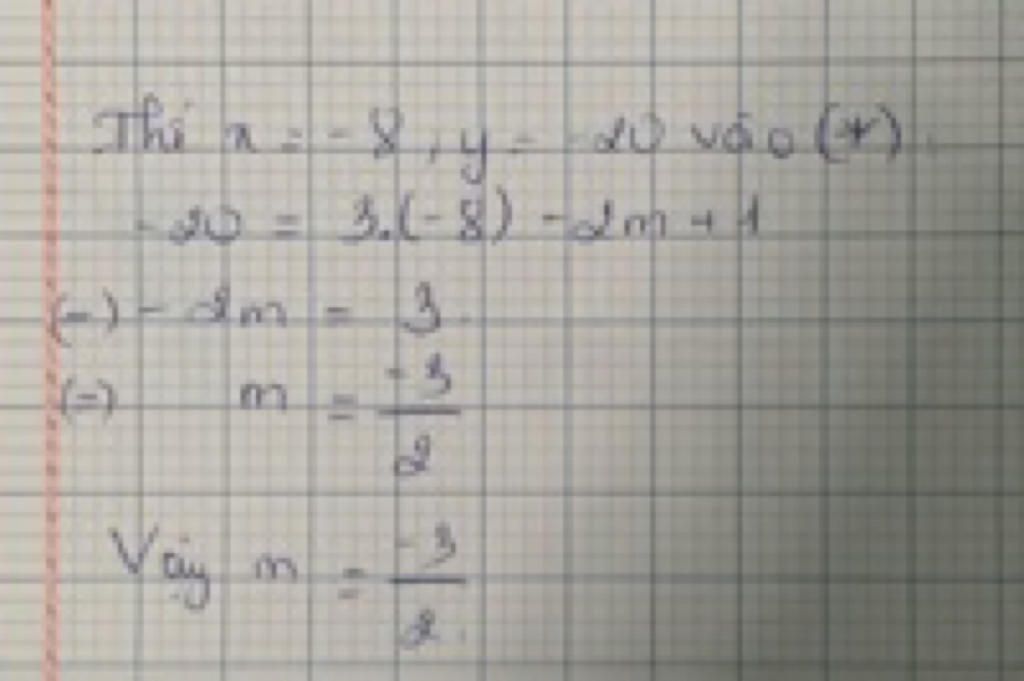 Thế x = -8, y = -20 vào (*).
-20 = 3.(-8) - 2m + 1
(=) - 2m = 3.
(=) m = -3/2
Vậy m = -3/2.